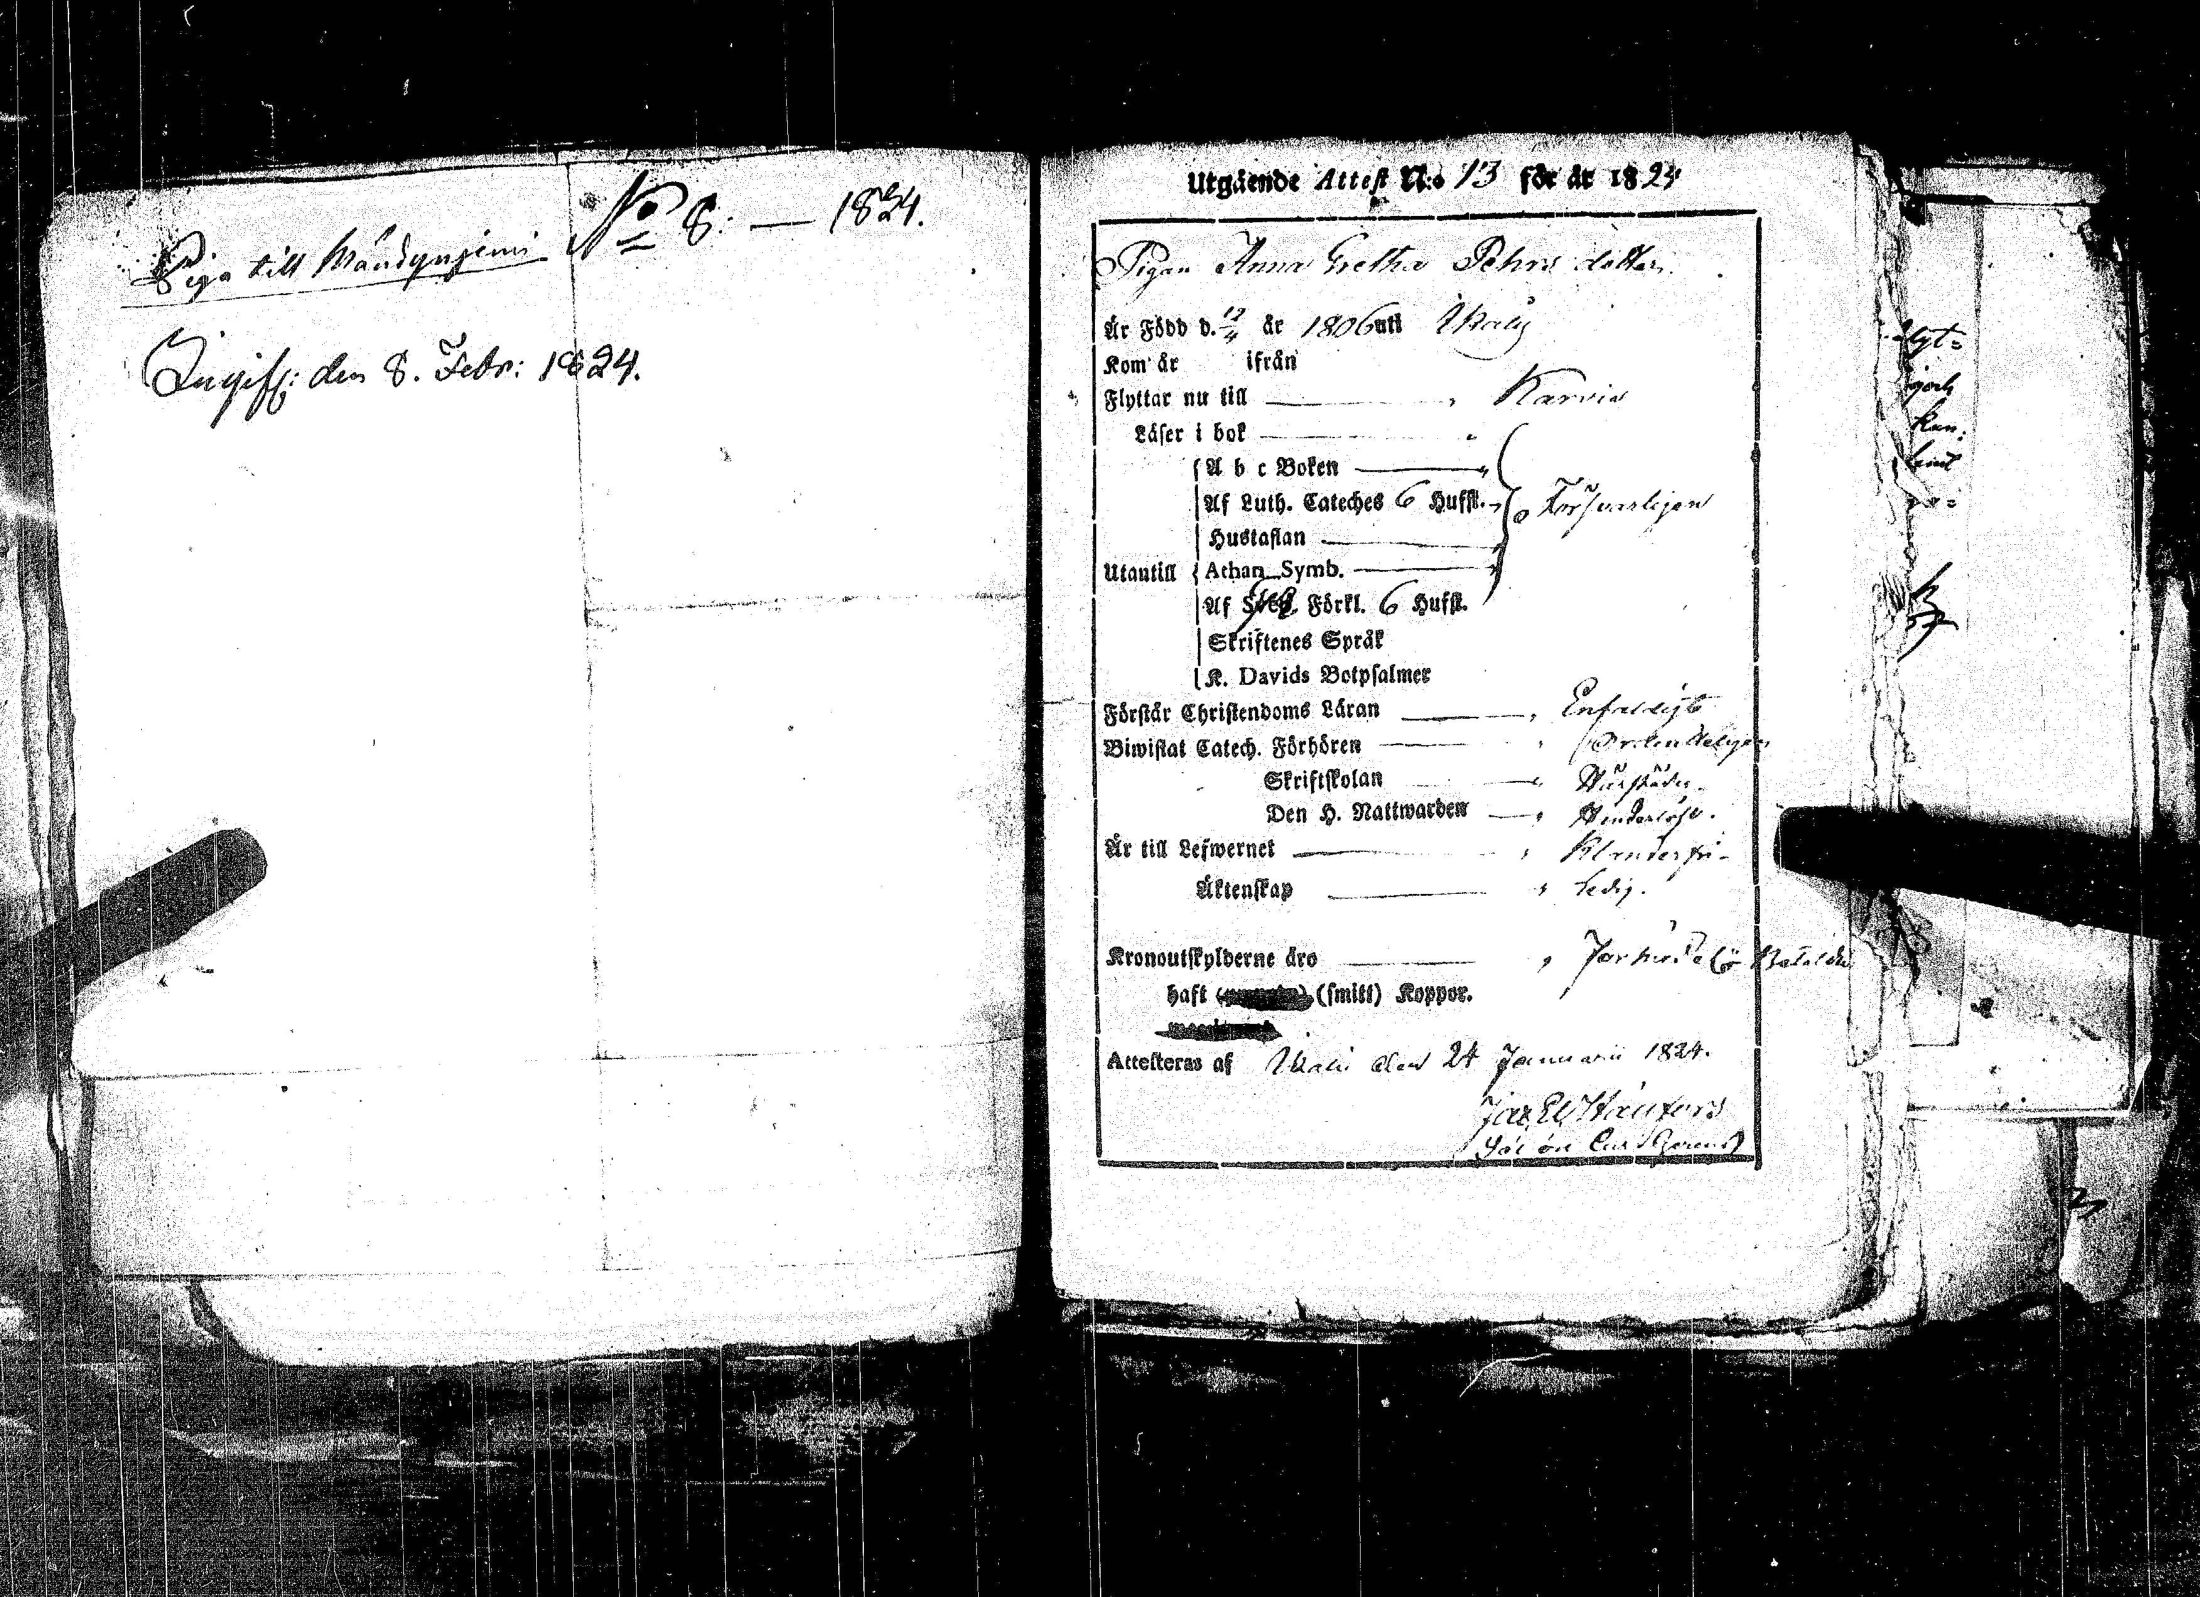 No 8: — 1824.
Piga till Mändynjemi
Ingiff: den 8. Febr: 1824.
Utgående Attest N:o 13 för år 1824
Pigan Anna Gretha Pehrs dotter.
Är Född d. 12/4 år 1806 uti Ikalis
Kom år ifrån
Flyttar nu till Karvia
Läser i bok
A b c Boken
Af Luth. Cateches 6 Hufst. Försvarligen
Hustaflan
Utantill Athan. Symb.
Af Förkl. 6 Hufst.
Skriftenes Språk
K. Davids Botpsalmer
Förstår Christendoms Läran Enfaldigt
Biwistat Catech. Förhören Ordenteligen
Skriftskolan
Den H. Nattwarden Hinderlös.
Är till Lefwernet Klanderfri
Äktenskap Ledig.
Kronoutskylderne äro
haft (smitt) Koppor.
Attesteras af Ikalis den 24 Januarii 1824.